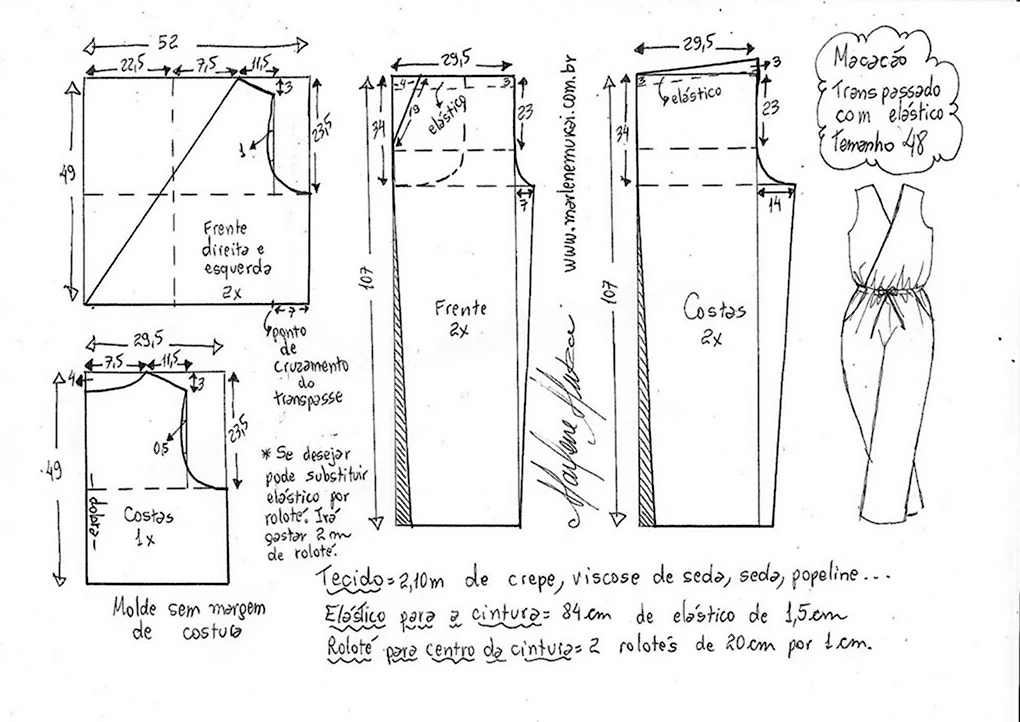 52
22,5 7,5 11,5
3
49
23,5
1
Frente
direita e
esquerda
2x
7
ponto
de
cruzamento
do
transpasse
29,5
7,5 11,5
4
3
49
23,5
0,5
dobra
Costas
1x
Molde sem margem
de costura
* Se desejar
pode substituir
elástico por
roloté. Irá
gastar 2m
de roloté.
29,5
4
3
19
elástico
34
23
7
107
Frente
2x
www.marlenemukai.com.br
Marlene Mukai
29,5
3
3
elástico
34
23
14
107
Costas
2x
Macacão
Transpassado
com elástico
Tamanho 48
Tecido=2,10m de crepe, viscose de seda, seda, popeline...
Elástico para a cintura= 84cm de elástico de 1,5cm
Roloté para centro da cintura= 2 rolotés de 20cm por 1cm.